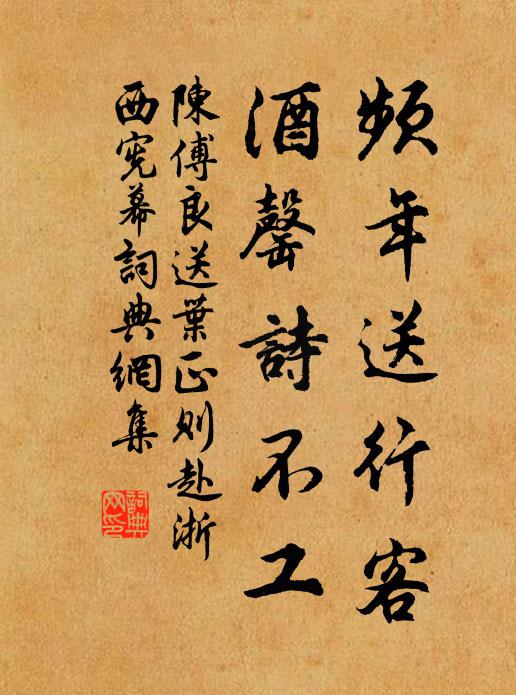 頻年送行客
酒罄詩不工
陳傅良送葉正則赴浙
西宪幕詞典網集
詞典網印